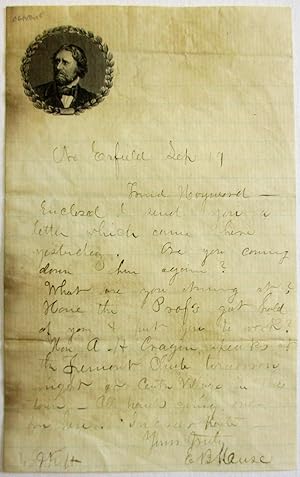 No Enfield Sep 19
Friend Hayward —
Enclosed I send you a
letter which came here
yesterday. Are you coming
down here again?
What are you driving at?
Have the Profs got hold
of you & put you to work?
Hon A. H. Cragin speaks at
the Fremont Club tomorrow
night at Centre Village in this
town — All hands going
In great haste
Yours Truly
E B Hause